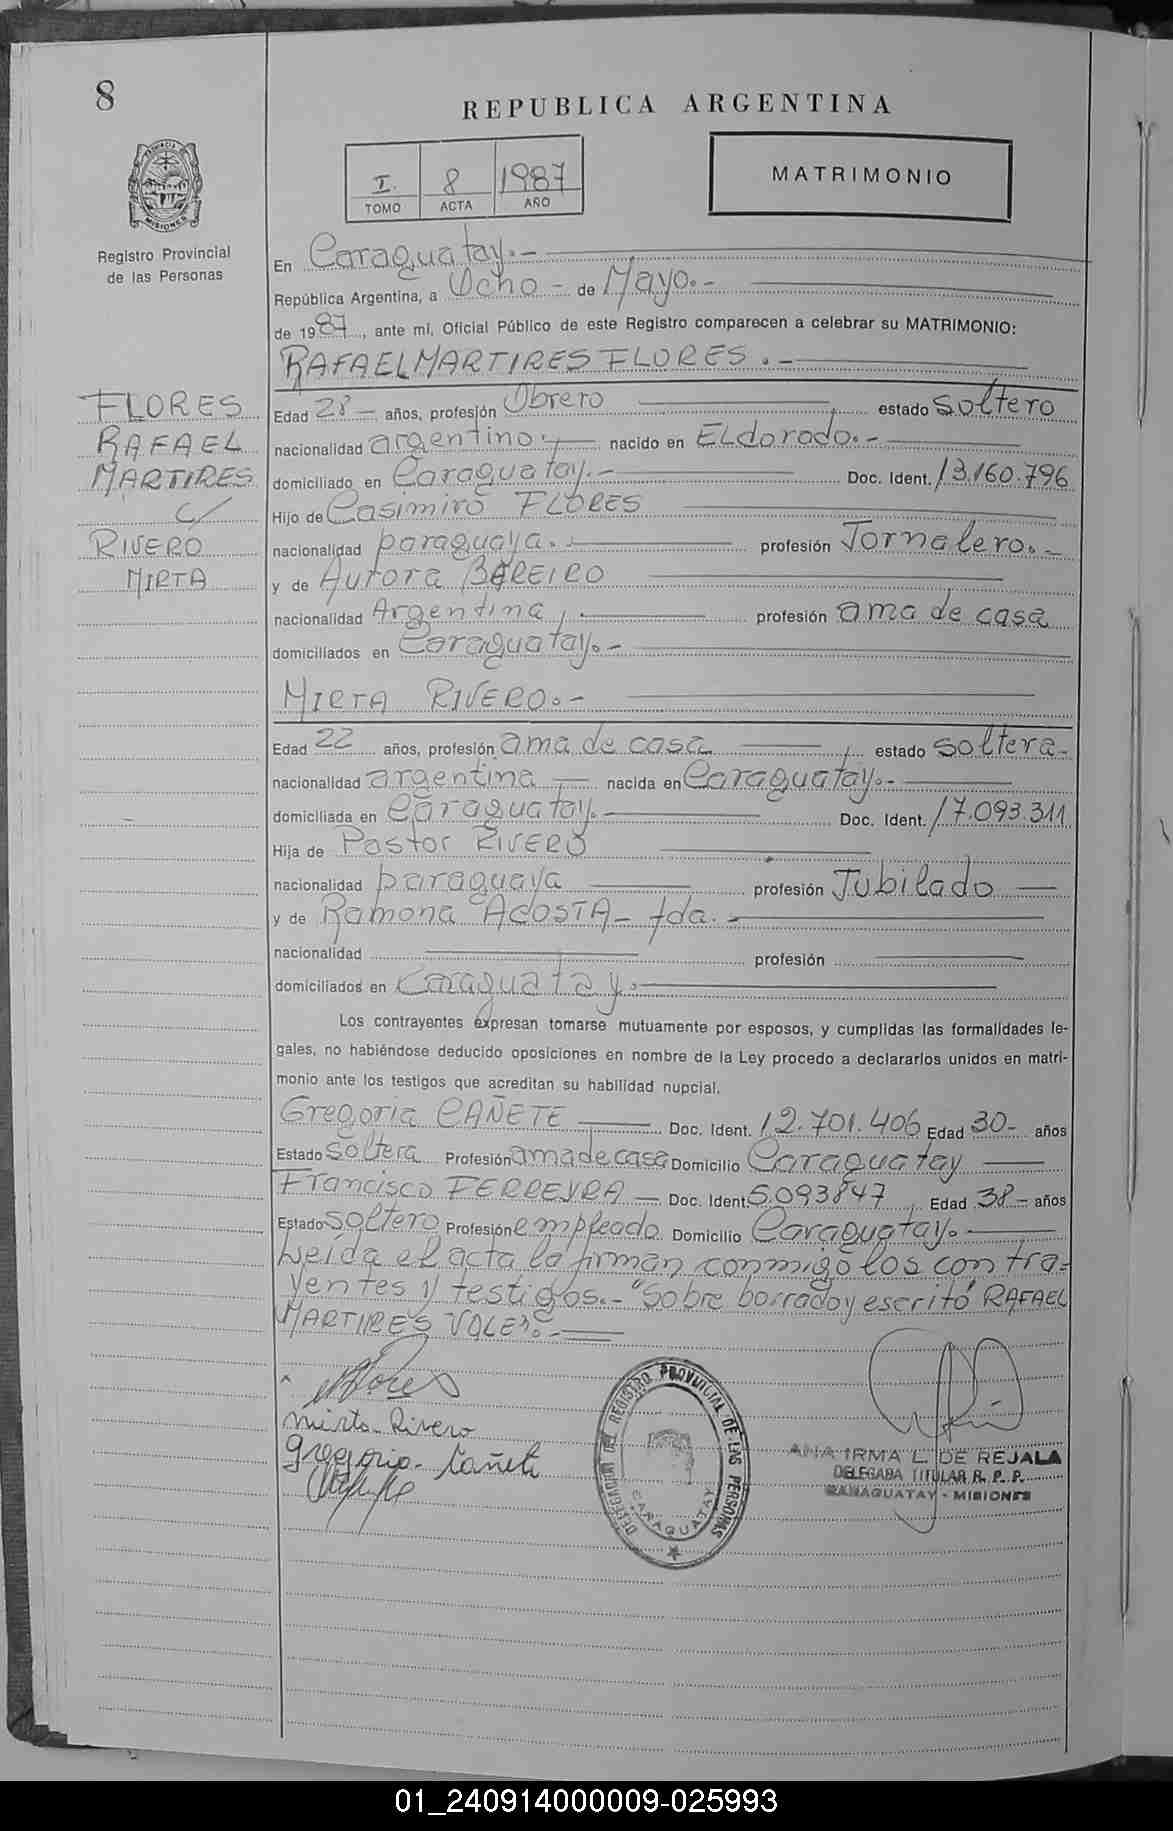 8
REPUBLICA ARGENTINA
I. 8 1987
TOMO ACTA AÑO
MATRIMONIO
PROVINCIA
MISIONES
Registro Provincial
de las Personas
En Caraguatay.-
República Argentina, a Ocho - de Mayo.-
de 1987, ante mí, Oficial Público de este Registro comparecen a celebrar su MATRIMONIO:
RAFAEL MARTIRES FLORES.-
FLORES
RAFAEL
MARTIRES
c/
RIVERO
MIRTA
Edad 28- años, profesión Obrero estado soltero
nacionalidad argentino.- nacido en ELdorado.-
domiciliado en Caraguatay.- Doc. Ident. 13.160.796
Hijo de Casimiro FLORES
nacionalidad paraguaya.- profesión Jornalero.-
y de Aurora BAREIRO
nacionalidad Argentina, profesión ama de casa
domiciliados en Caraguatay.-
MIRTA RIVERO.-
Edad 22 años, profesión ama de casa estado soltera-
nacionalidad argentina nacida en Caraguatay.-
domiciliada en Caraguatay.- Doc. Ident. 17.093.311
Hija de Pastor RIVERO
nacionalidad paraguaya profesión Jubilado
y de Ramona ACOSTA- fda.-
nacionalidad profesión
domiciliados en Caraguatay.
Los contrayentes expresan tomarse mutuamente por esposos, y cumplidas las formalidades le-
gales, no habiéndose deducido oposiciones en nombre de la Ley procedo a declararlos unidos en matri-
monio ante los testigos que acreditan su habilidad nupcial.
Gregoria CAÑETE Doc. Ident. 12.701.406 Edad 30- años
Estado soltera Profesión ama de casa Domicilio Caraguatay
Francisco FERREYRA - Doc. Ident. 5.093847, Edad 38- años
Estado soltero Profesión empleado Domicilio Caraguatay.-
Leída el acta la firman conmigo los contra=
yentes y testigos.-"Sobre borrado y escrito" RAFAEL
MARTIRES VALE".-
Flores
mirta Rivero
gregoria Cañete
DELEGACION DEL REGISTRO PROVINCIAL DE LAS PERSONAS
CARAGUATAY
ANA IRMA L. DE REJALA
DELEGADA TITULAR R. P. P.
CARAGUATAY - MISIONES
01_240914000009-025993